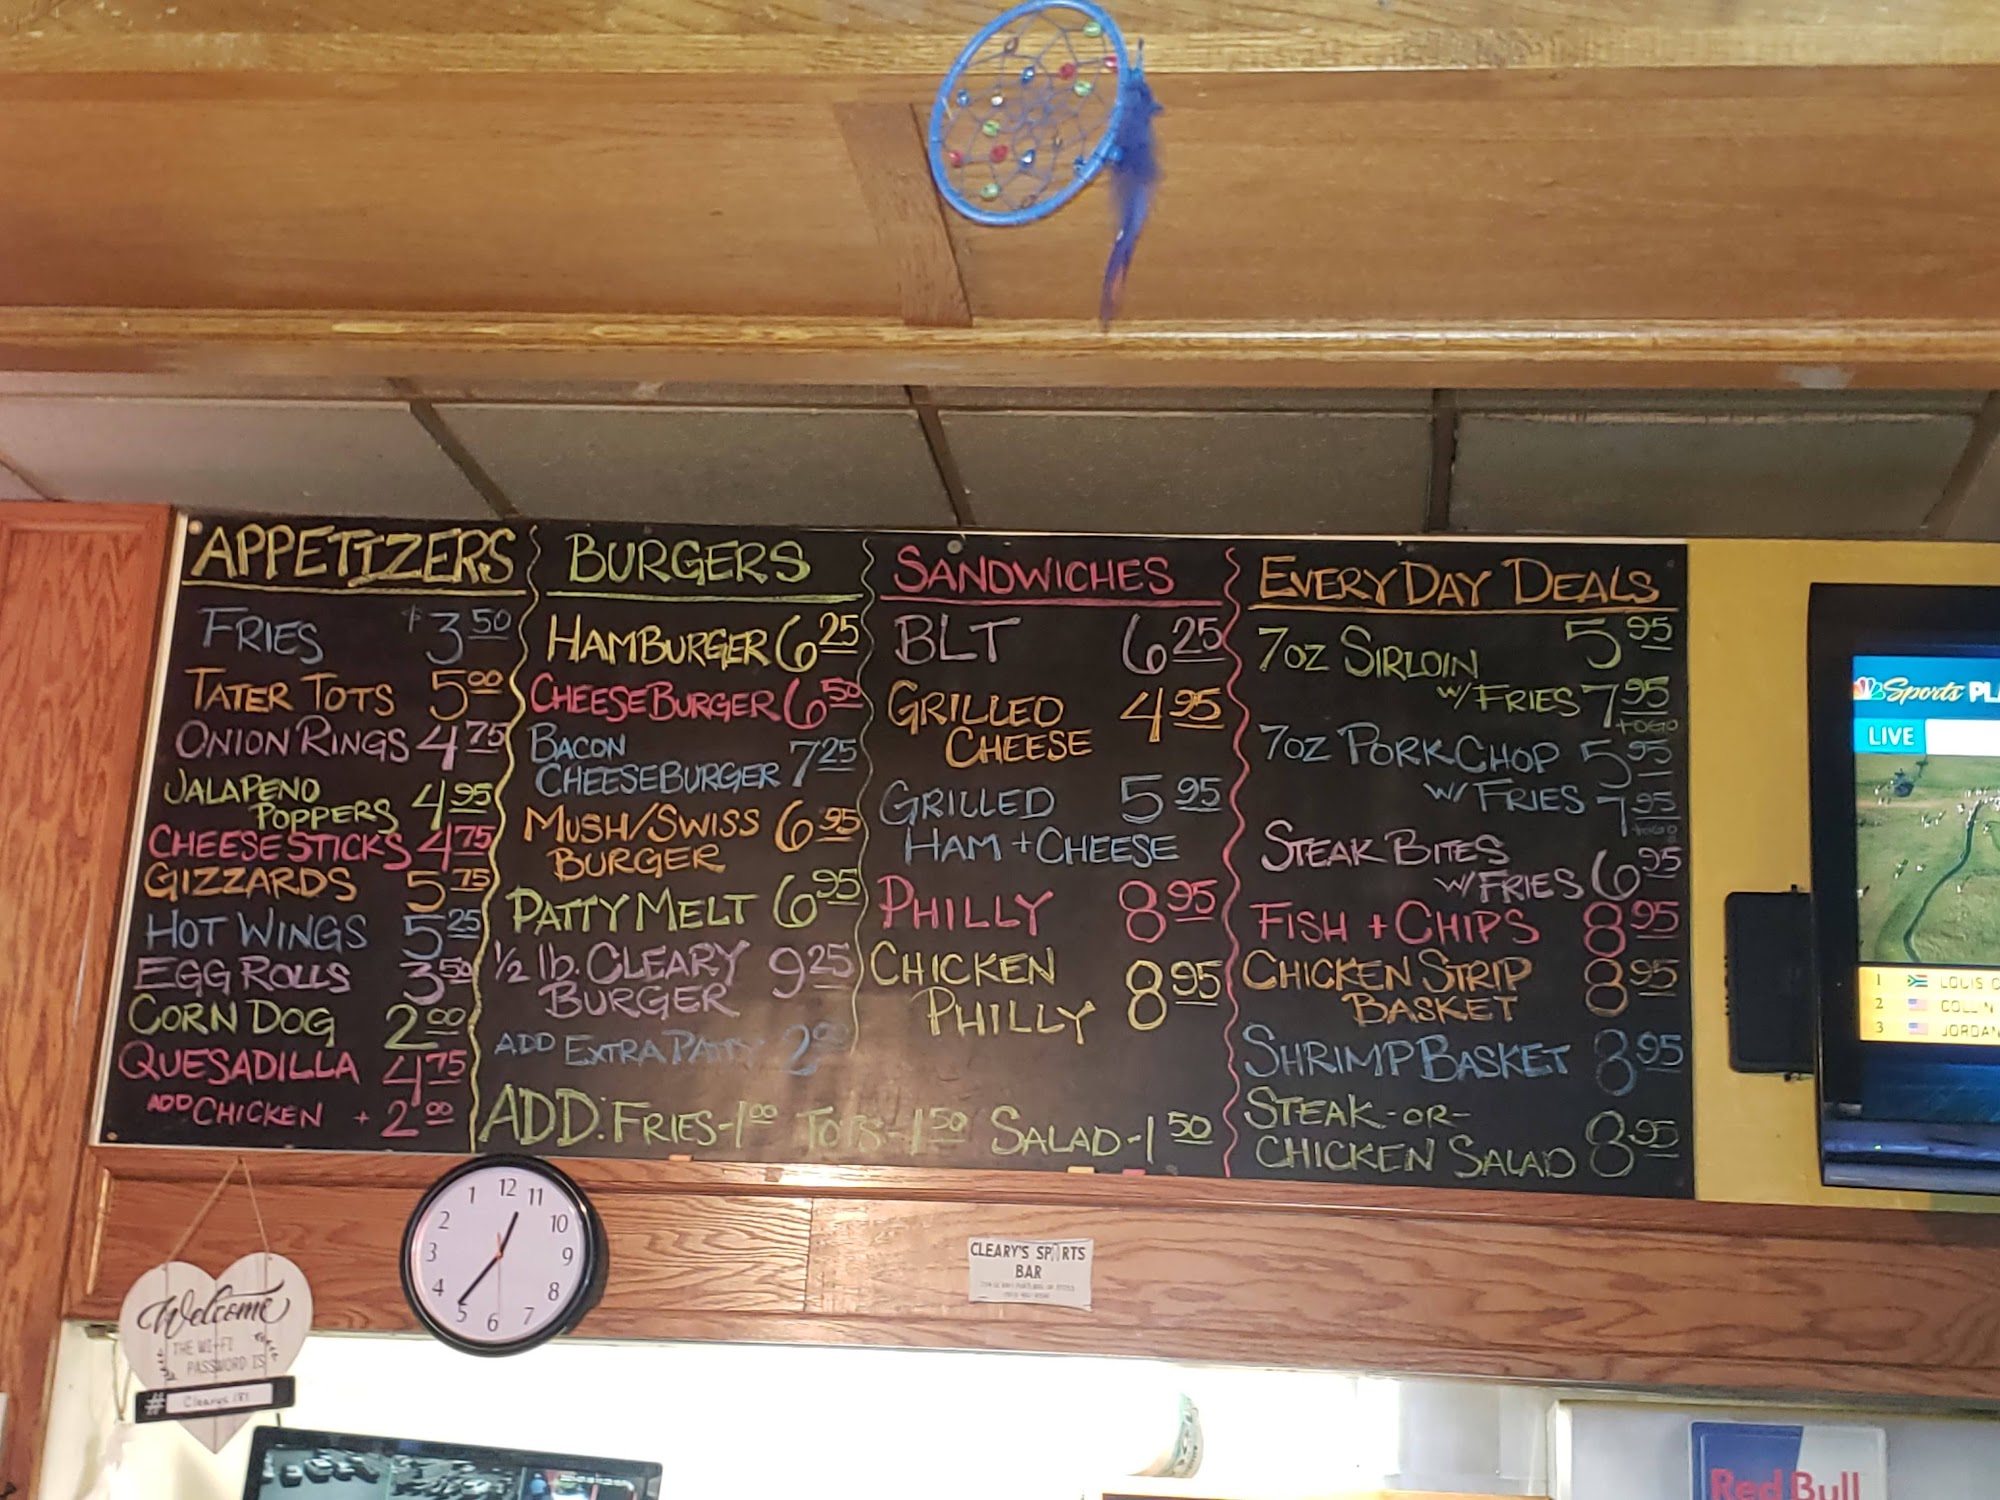 APPETIZERS
FRIES $3.50
TATER TOTS 5.00
ONION RINGS 4.75
JALAPENO
POPPERS 4.95
CHEESE STICKS 4.75
GIZZARDS 5.75
HOT WINGS 5.25
EGG ROLLS 3.50
CORN DOG 2.00
QUESADILLA 4.75
ADD CHICKEN + 2.00
BURGERS
HAMBURGER 6.25
CHEESEBURGER 6.50
BACON
CHEESEBURGER 7.25
MUSH/SWISS 6.95
BURGER
PATTY MELT 6.95
1/2 lb. CLEARY 9.25
BURGER
ADD EXTRA PATTY 2.00
SANDWICHES
BLT 6.25
GRILLED 4.95
CHEESE
GRILLED 5.95
HAM + CHEESE
PHILLY 8.95
CHICKEN
PHILLY 8.95
ADD: FRIES-1.00 TOTS-1.50 SALAD-1.50
EVERY DAY DEALS
7OZ SIRLOIN 5.95
W/FRIES 7.95
TOGO
7OZ PORK CHOP 5.95
W/FRIES 7.95
TOGO
STEAK BITES
W/FRIES 6.95
FISH + CHIPS 8.95
CHICKEN STRIP 8.95
BASKET
SHRIMP BASKET 8.95
STEAK-OR-
CHICKEN SALAD 8.95
Sports
LIVE
1 LOUIS
2 COLLIN
3 JORDAN
12 11 10 9 8 7 6 5 4 3 2 1
CLEARY'S SPORTS
BAR
Welcome
THE WI-FI
PASSWORD IS
# Clearys 181
Red Bull